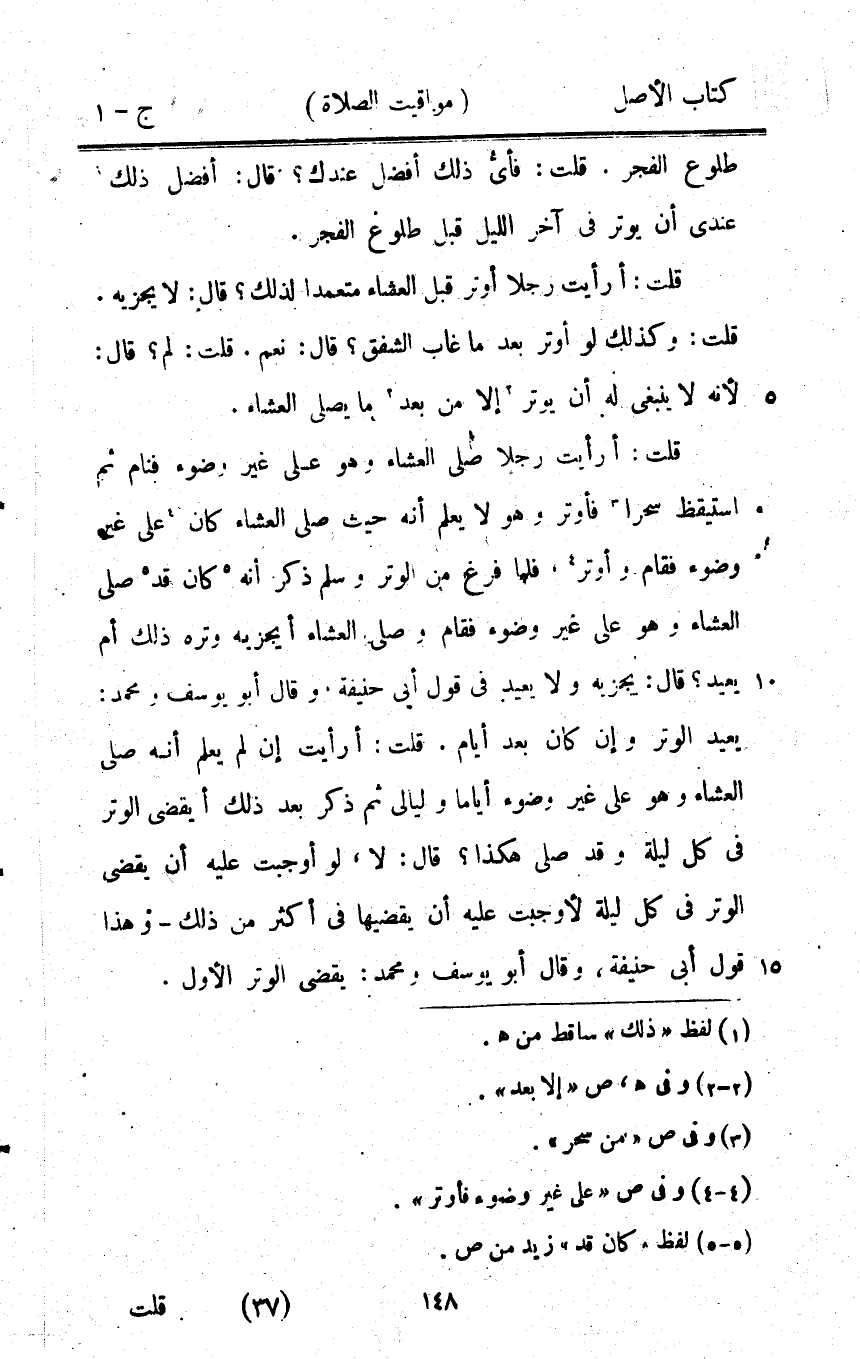 كتاب الأصل (مواقيت الصلاة) ج - ١
طلوع الفجر . قلت : فأىُّ ذلك أفضل عندك ؟ قال : أفضل ذلك ١
عندى أن يوتر فى آخر الليل قبل طلوع الفجر .
قلت : أ رأيت رجلا أوتر قبل العشاء متعمدا لذلك ؟ قال : لا يجزيه .
قلت : و كذلك لو أوتر بعد ما غاب الشفق ؟ قال : نعم . قلت : لم ؟ قال :
٥ لأنه لا ينبغى له أن يوتر ٢ إلا من بعد ٢ ما يصلى العشاء .
قلت : أ رأيت رجلا صلى العشاء و هو على غير وضوء فنام ثم
استيقظ سحرا ٣ فأوتر و هو لا يعلم أنه حيث صلى العشاء كان ٤ على غير
وضوء فقام و أوتر ٤ ، فلما فرغ من الوتر و سلم ذكر أنه ٥ كان قد ٥ صلى
العشاء و هو على غير وضوء فقام و صلى العشاء أ يجزيه وتره ذلك أم
١٠ يعيد ؟ قال : يجزيه و لا يعيد فى قول أبى حنيفة . و قال أبو يوسف و محمد :
يعيد الوتر و إن كان بعد أيام . قلت : أ رأيت إن لم يعلم أنه صلى
العشاء و هو على غير وضوء أياما و ليالى ثم ذكر بعد ذلك أ يقضى الوتر
فى كل ليلة و قد صلى هكذا ؟ قال : لا ، لو أوجبت عليه أن يقضى
الوتر فى كل ليلة لأوجبت عليه أن يقضيها فى أكثر من ذلك - و هذا
١٥ قول أبى حنيفة ، و قال أبو يوسف و محمد : يقضى الوتر الأول .
(١) لفظ « ذلك » ساقط من ه .
(٢-٢) و فى ه ، ص « إلا بعد » .
(٣) و فى ص « من سحر » .
(٤-٤) و فى ص « على غير وضوء فأوتر » .
(٥-٥) لفظ « كان قد » زيد من ص .
١٤٨ (٣٧) قلت